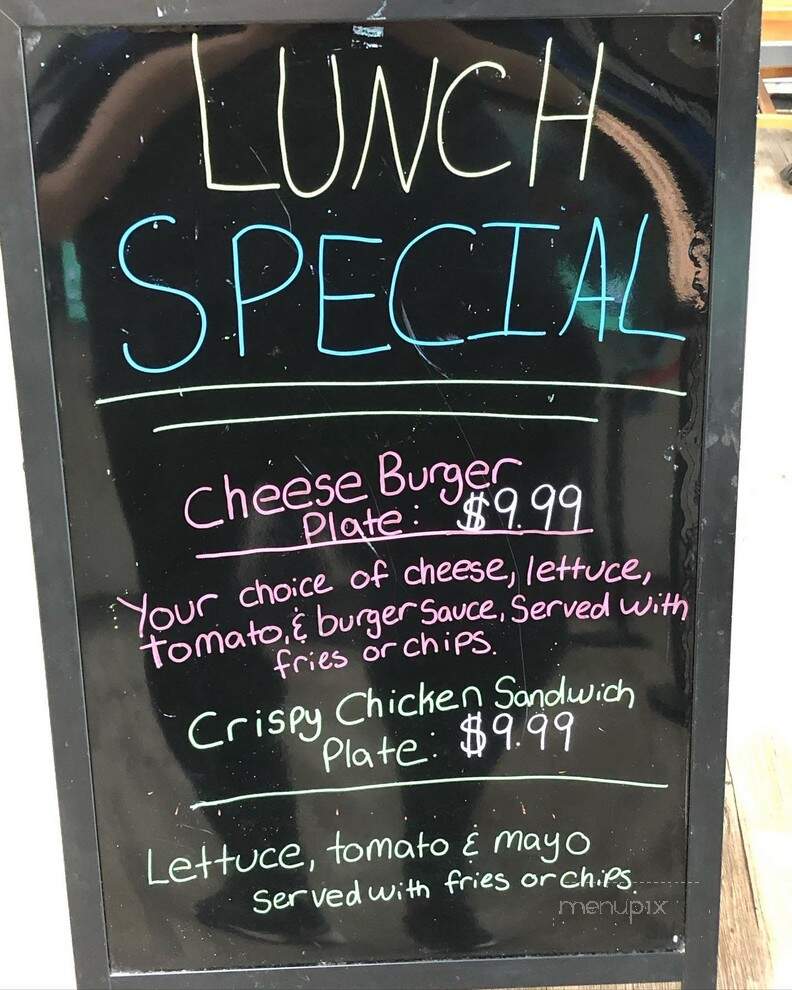 LUNCH
SPECIAL
Cheese Burger
Plate: $9.99
Your choice of cheese, lettuce,
tomato, & burger sauce. Served with
fries or chips.
Crispy Chicken Sandwich
Plate: $9.99
Lettuce, tomato & mayo
Served with fries or chips.
menupix